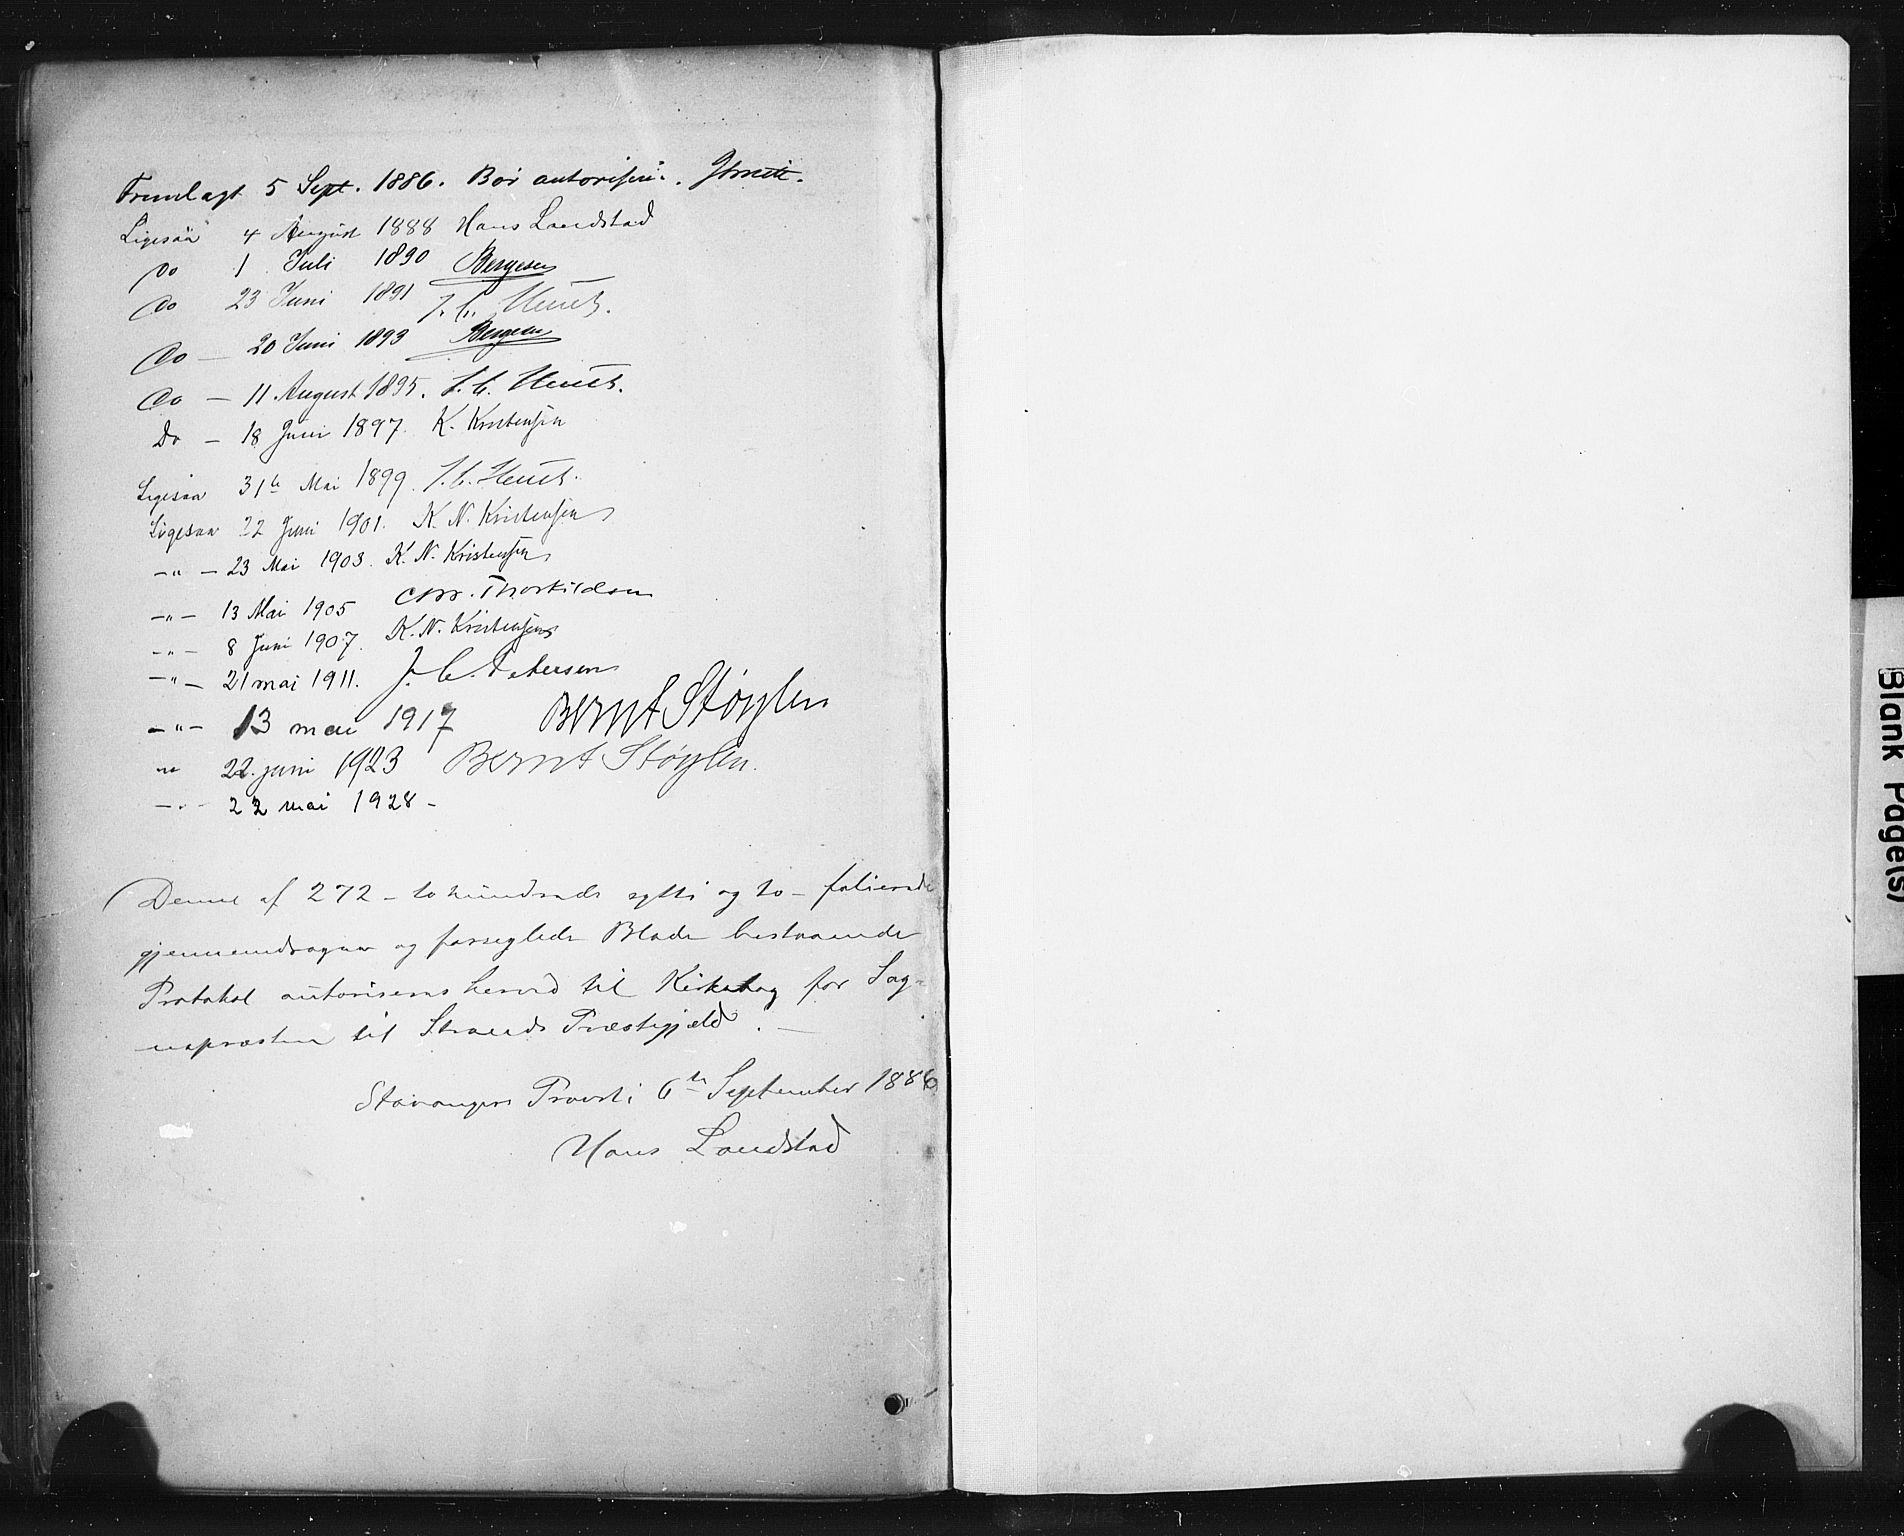 Fremlagt 5 Sept. 1886. Bør autoriseres.
Ligesaa 4 August 1888 Hans Landstad
Do 1 Juli 1890 Bergesen
Do 23 Juni 1891 J. C. Heuch.
Do — 20 Juni 1893 Bergesen
Do — 11 August 1895. J. C. Heuch.
Do — 18 Juni 1897. K. Kristensen
Ligesaa 31te Mai 1899. J. C. Heuch.
Ligesaa 22 Juni 1901. K. N. Kristensen
—"— 23 Mai 1903. K. N. Kristensen
—"— 13 Mai 1905 Chr. Thorkildsen
—"— 8 Juni 1907. K. N. Kristensen
—"— 21 mai 1911. J. C. Petersen
—"— 13 mai 1917 Bernt Støylen
—"— 22. juni 1923 Bernt Støylen.
—"— 22 mai 1928 —
Denne af 272 — to hundrede sytti og to — folierede
gjennemdragne og forseglede Blade bestaaende
Protokol autoriseres herved til Kirkebog for Sog-
nepræsten til Strands Præstegjæld. —
Stavangers Provsti 6te September 1886
Hans Landstad
Blank Page(s)